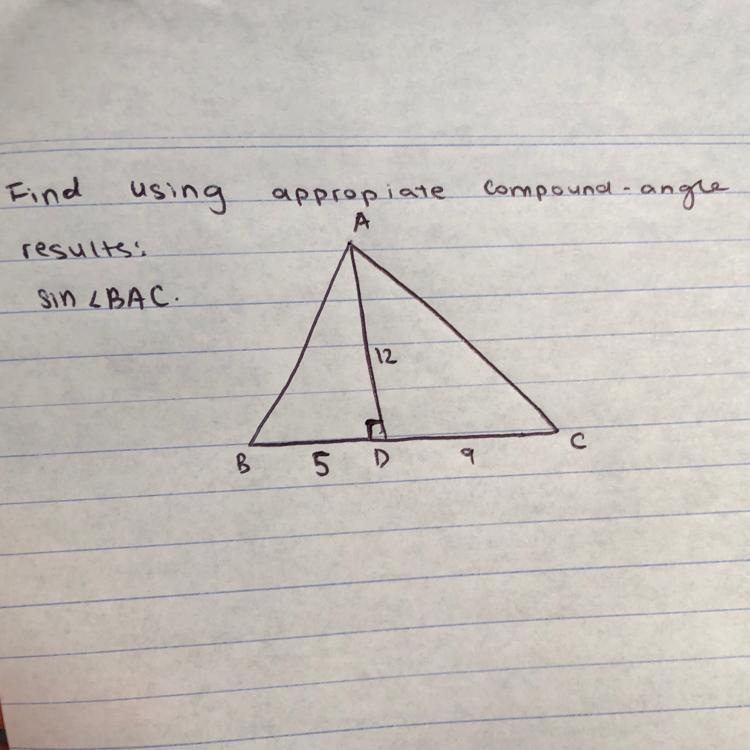 Find using appropiate compound-angle
results:
sin ∠BAC.
A
12
B 5 D 9 C